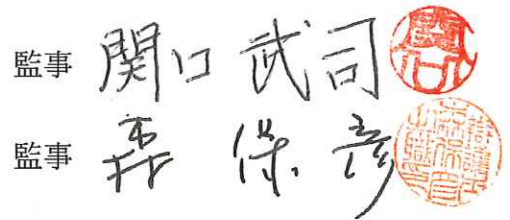 監事 関口 武司 関口
監事 森 保彦